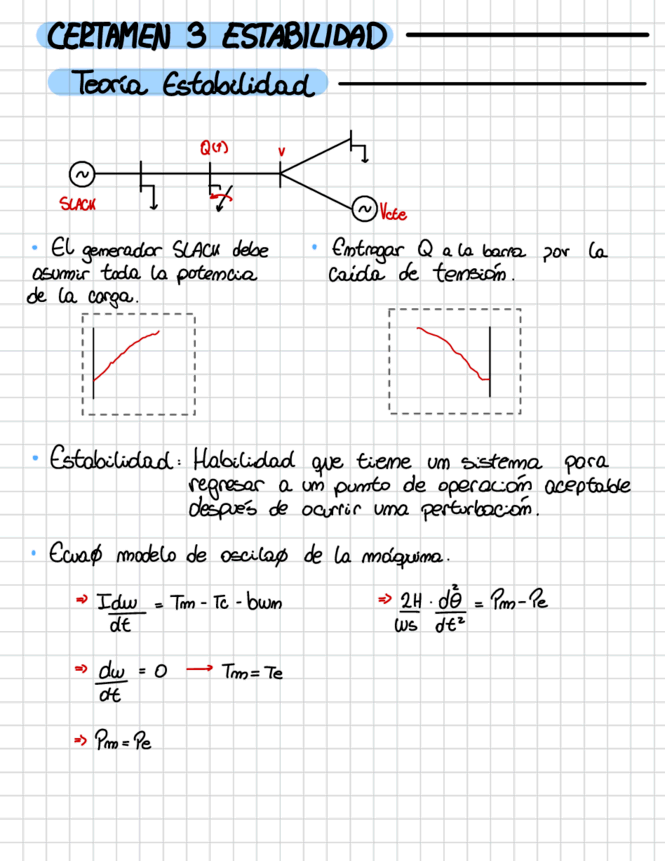 CERTAMEN 3 ESTABILIDAD
Teoría Estabilidad
Q(↑)
V
SLACK
Vcte
• El generador SLACK debe
asumir toda la potencia
de la carga.
• Entregar Q a la barra por la
caída de tensión.
• Estabilidad: Habilidad que tiene un sistema para
regresar a un punto de operación aceptable
después de ocurrir una perturbación.
• Ecuaϕ modelo de oscilaϕ de la máquina.
⇒ Idw/dt = Tm - Tc - bwm
⇒ 2H/ws · d²θ/dt² = Pm - Pe
⇒ dw/dt = 0 → Tm = Te
⇒ Pm = Pe